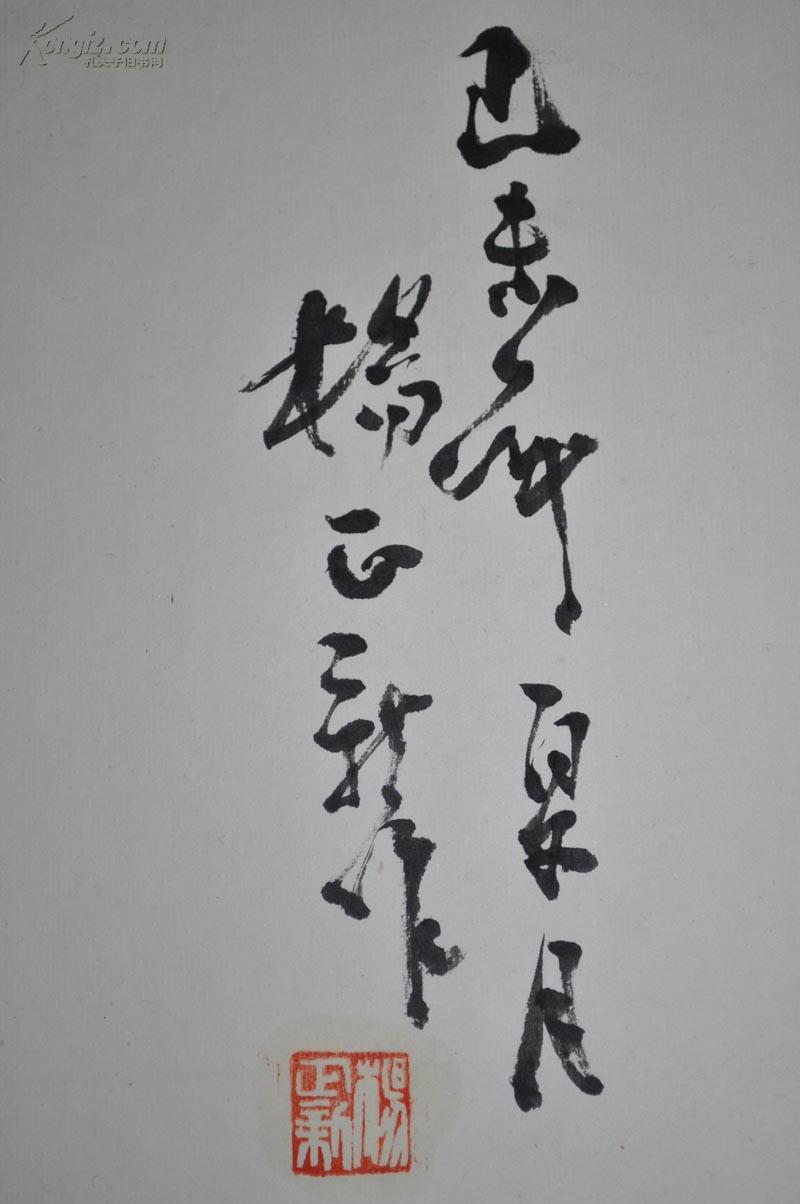 Kongfz.com
孔夫子旧书网
己未年夏月
楊正新作
楊正新